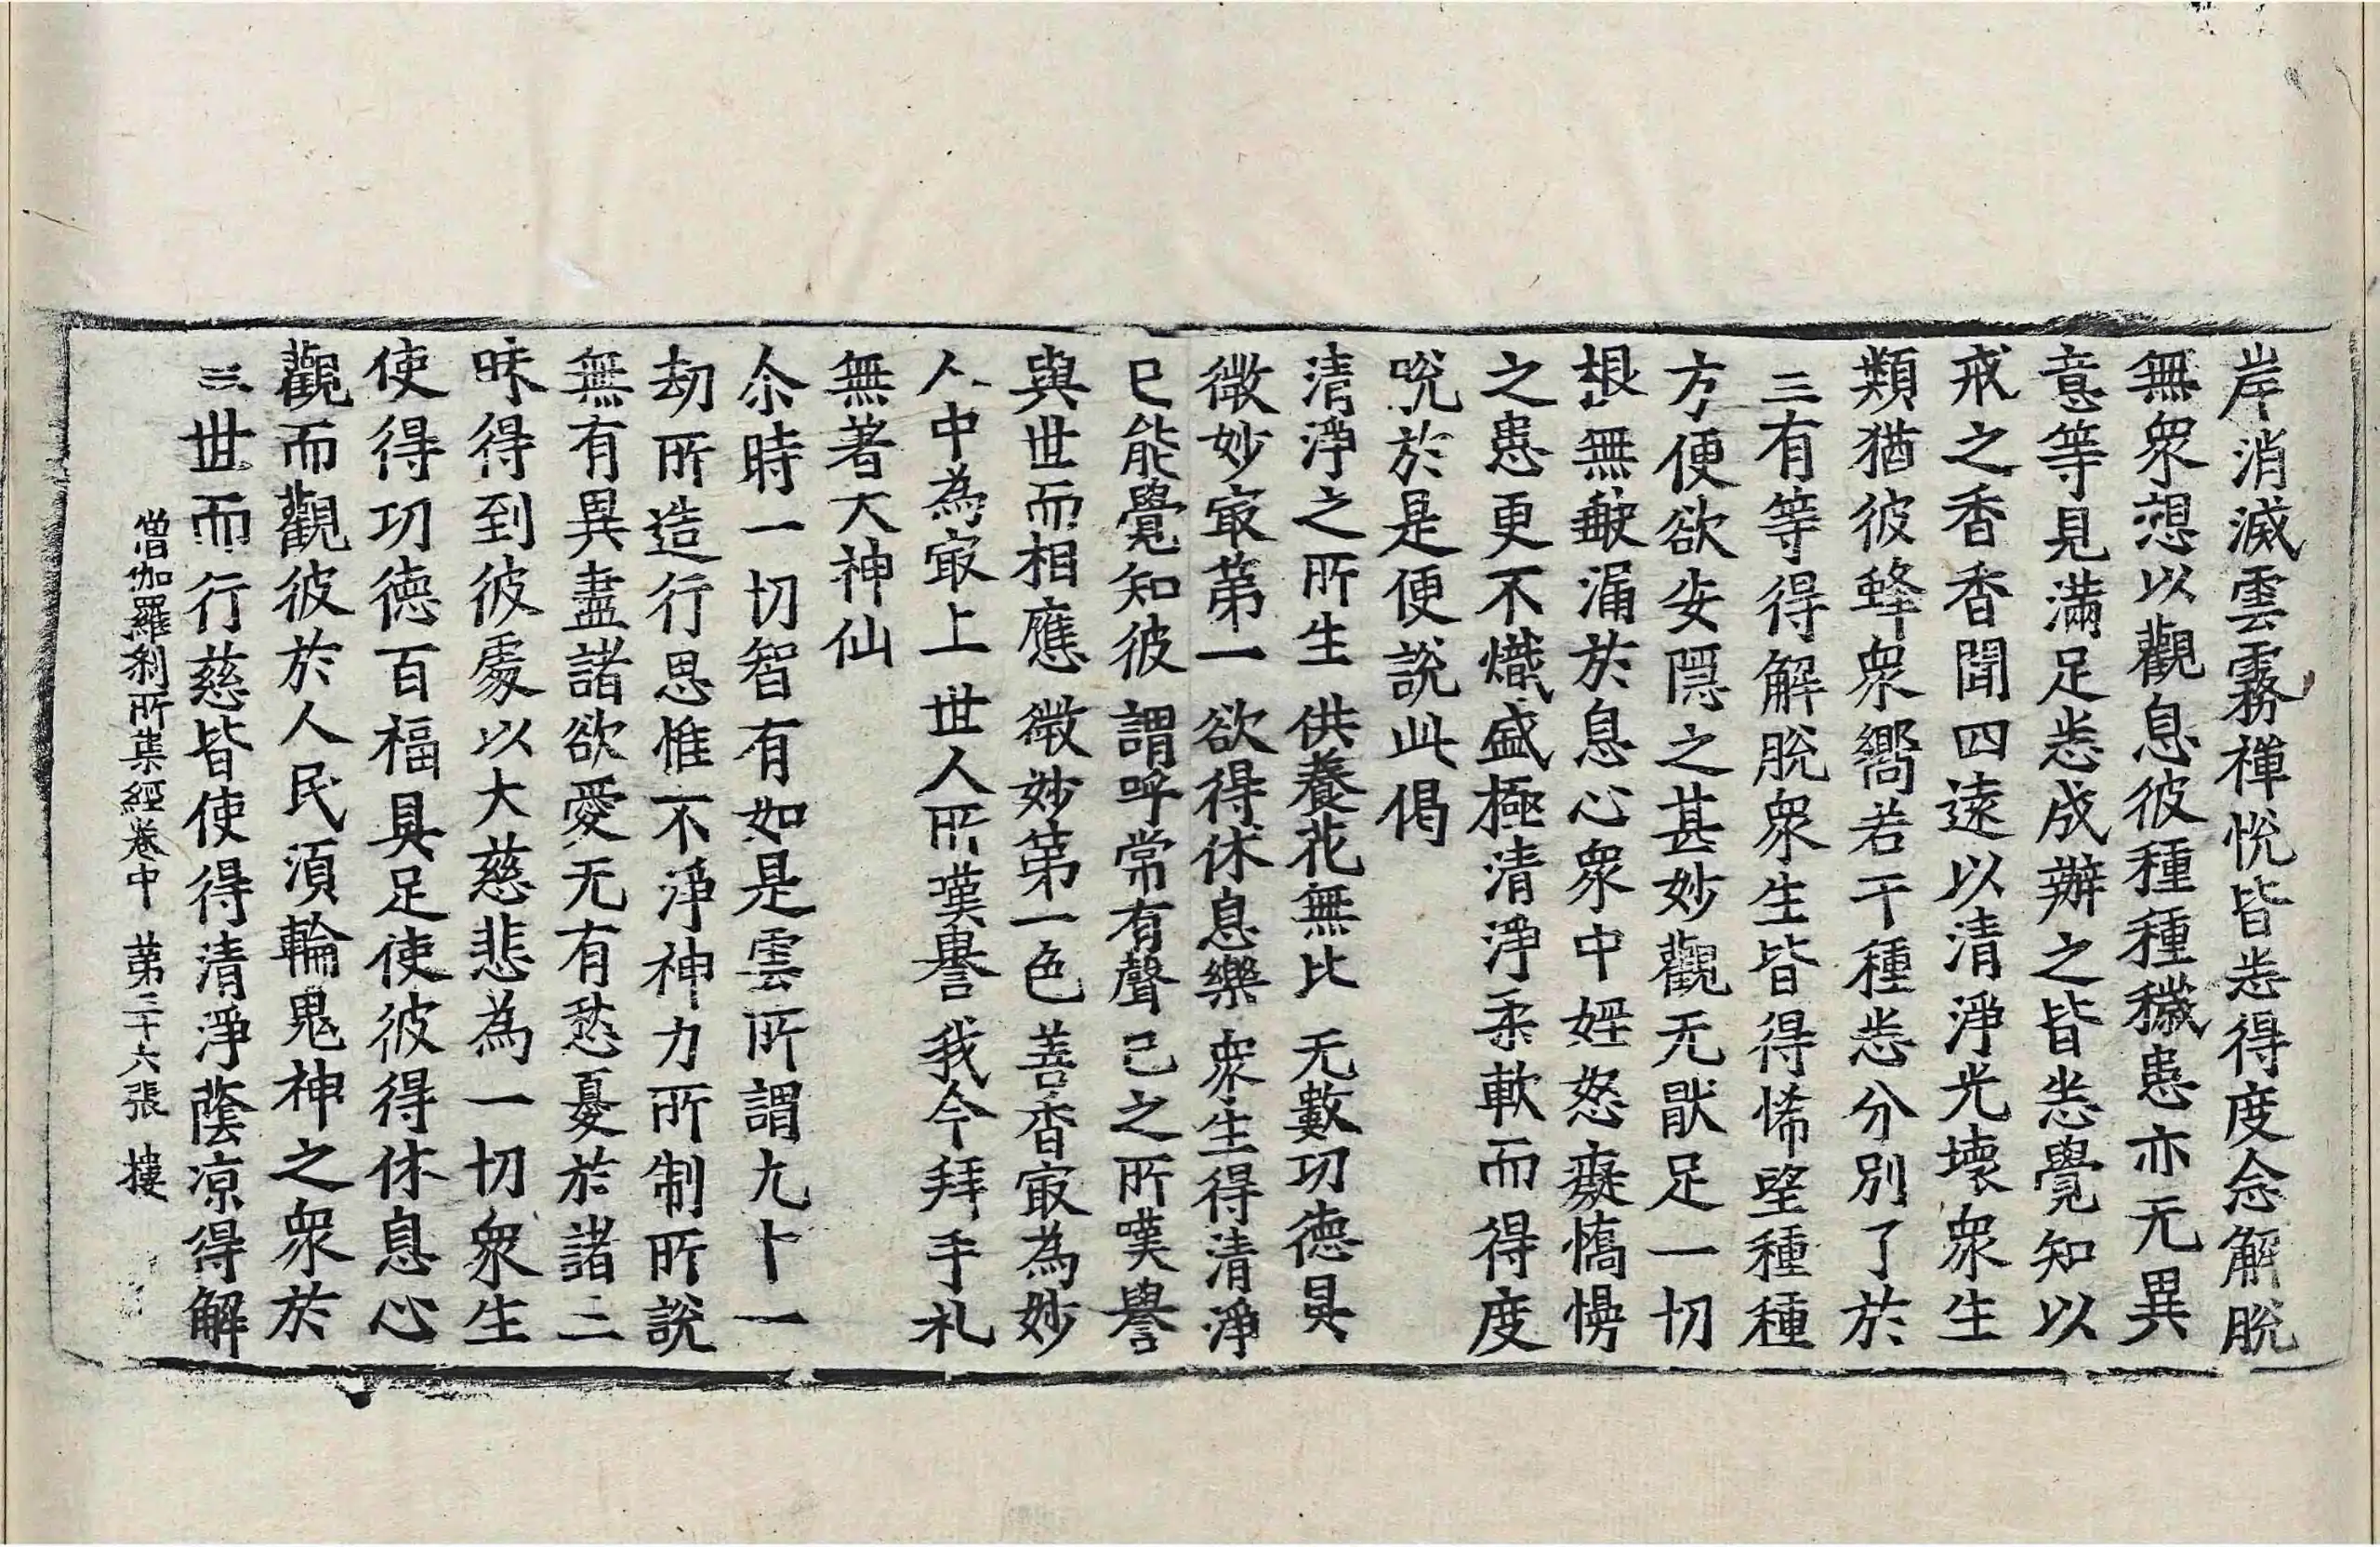 岸消滅雲霧禪悅皆悉得度念解脫
無衆想以觀息彼種種穢患亦无異
意等見滿足悉成辦之皆悉覺知以
戒之香香聞四遠以清淨光壞衆生
類猶彼蜂衆嚮若干種悉分別了於
三有等得解脫衆生皆得悕望種種
方便欲安隱之甚妙觀无猒足一切
根無㪇漏於息心衆中婬怒癡憍慢
之患更不熾盛極清淨柔軟而得度
㕙於是便說此偈
清淨之所生 供養花無比 无數功德具
微妙㝡第一 欲得休息樂 衆生得清淨
已能覺知彼 謂呼常有聲 己之所嘆譽
與世而相應 微妙第一色 善香㝡為妙
人中為㝡上 世人所嘆譽 我今拜手礼
無著大神仙
尒時一切智有如是雲所謂九十一
劫所造行思惟不淨神力所制所說
無有異盡諸欲愛无有愁憂於諸三
昧得到彼處以大慈悲為一切衆生
使得功德百福具足使彼得休息心
觀而觀彼於人民須輪鬼神之衆於
三世而行慈皆使得清淨蔭涼得解
僧伽羅刹所集經卷中 第三十六張 摟